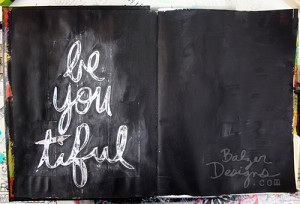 be
you
tiful
Balzer
Designs
.com